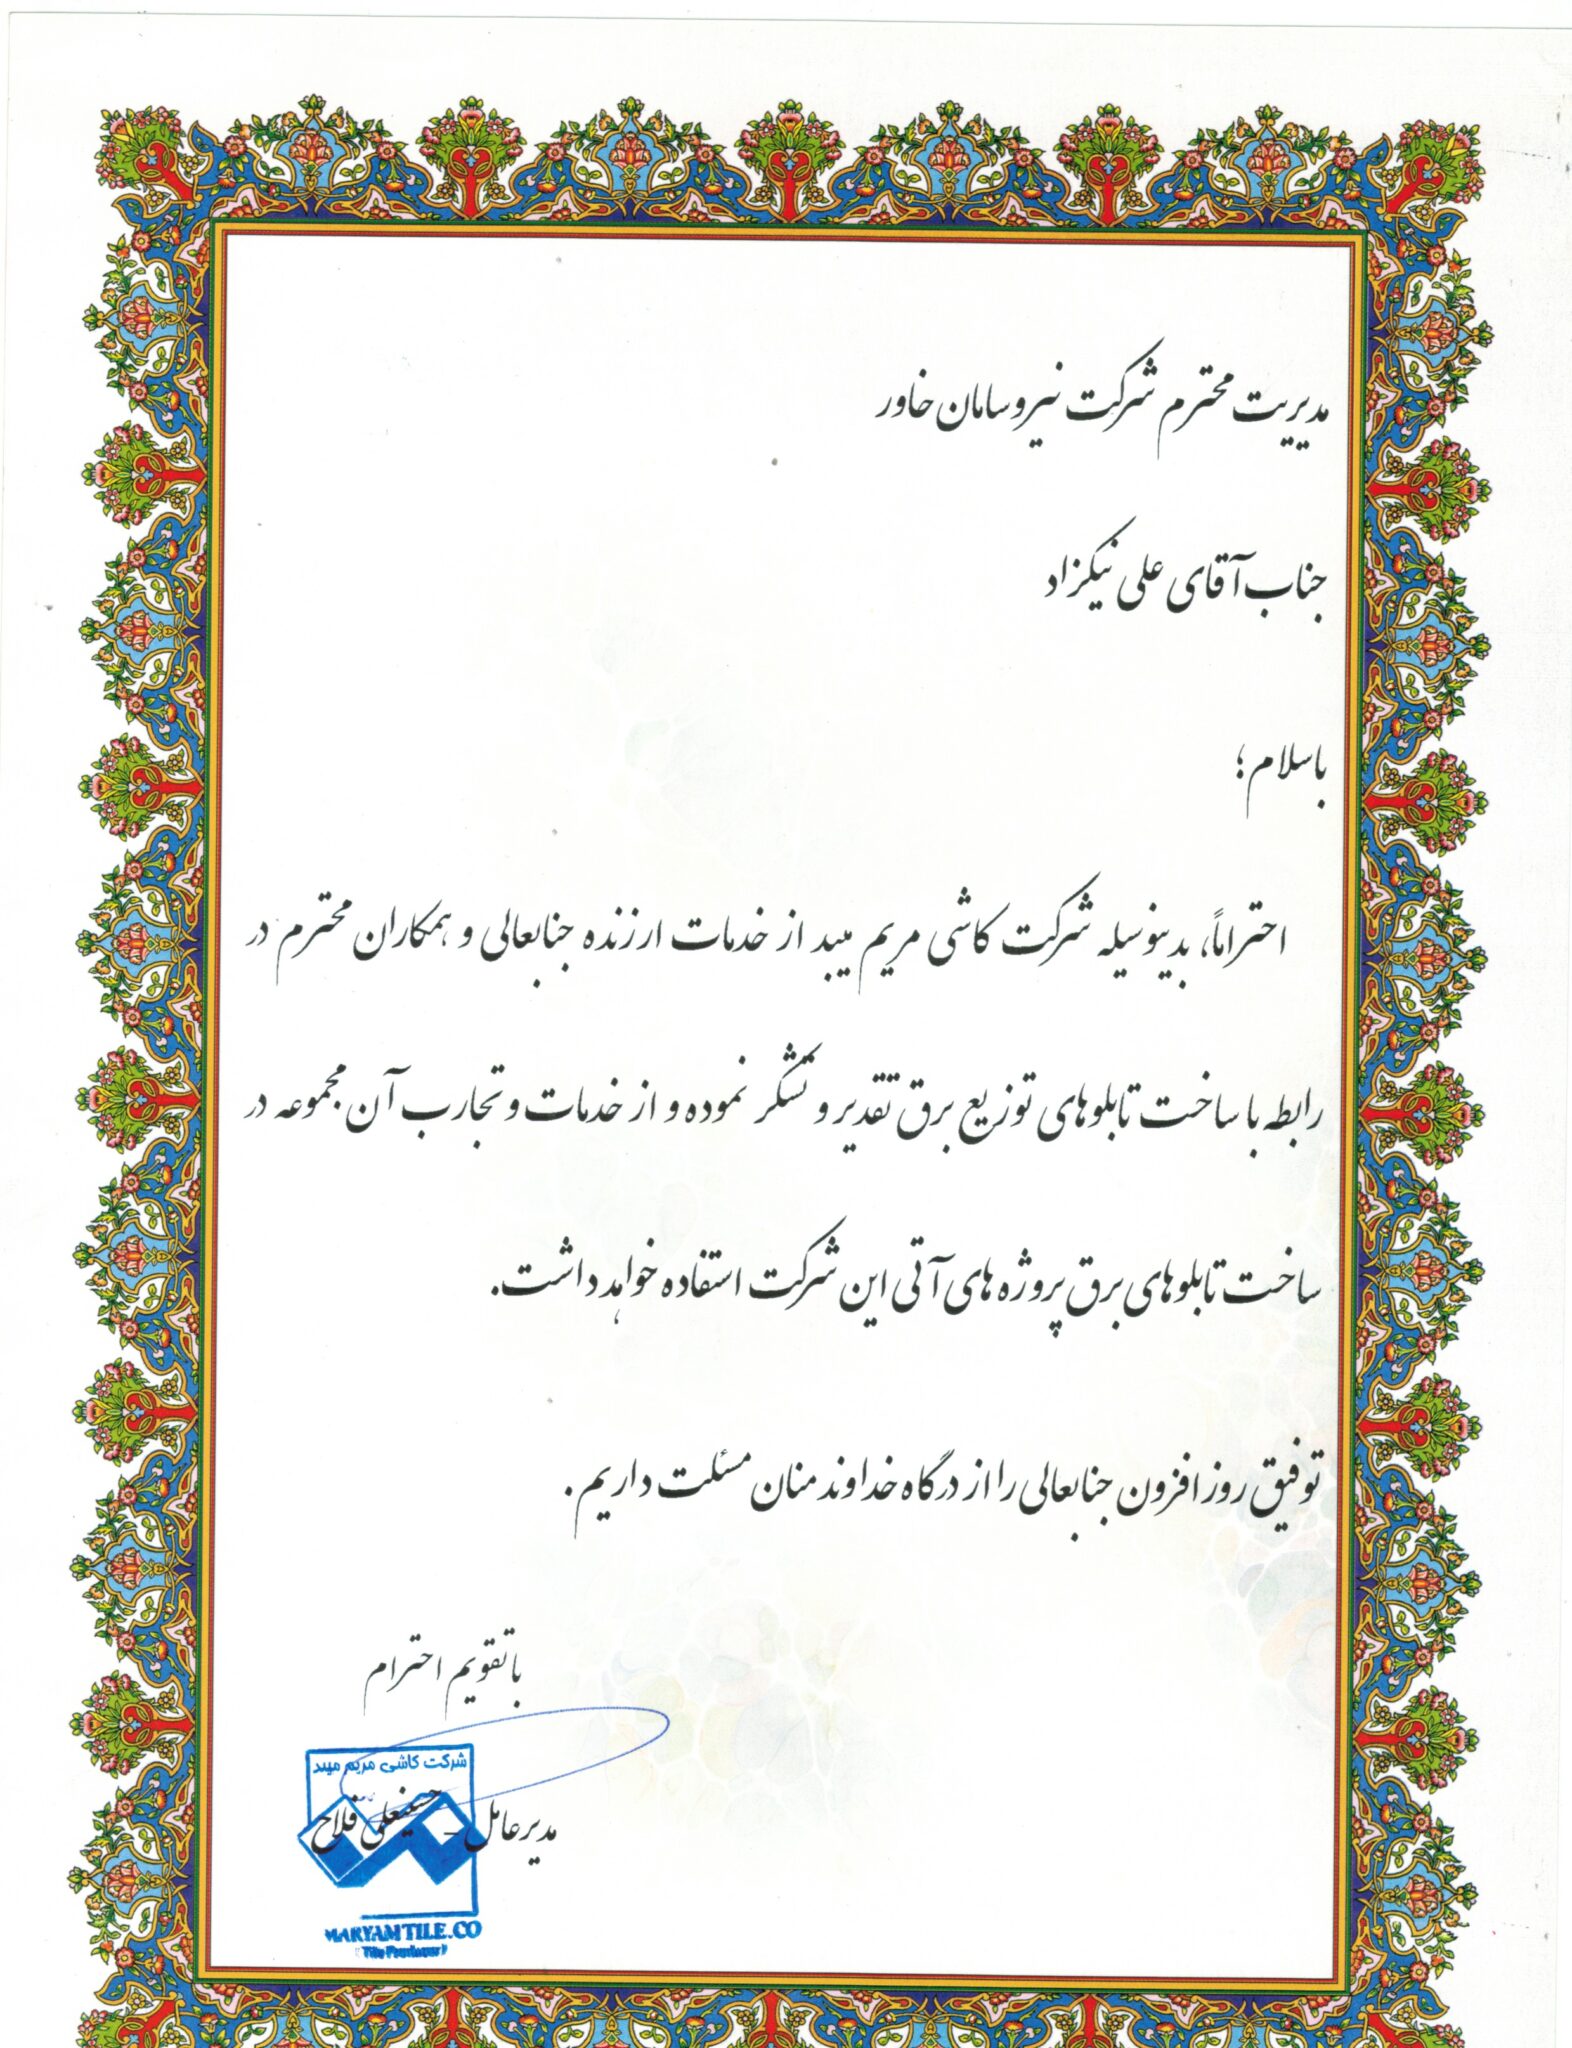 مدیریت محترم شرکت نیرو سامان خاور
جناب آقای علی نیکزاد
با سلام؛
احتراماً، بدینوسیله شرکت کاشی مریم میبد از خدمات ارزنده جنابعالی و همکاران محترم در
رابطه با ساخت تابلوهای توزیع برق تقدیر و تشکر نموده و از خدمات و تجارب آن مجموعه در
ساخت تابلوهای برق پروژه های آتی این شرکت استفاده خواهد داشت.
توفیق روز افزون جنابعالی را از درگاه خداوند منان مسئلت داریم.
با تقویم احترام
شرکت کاشی مریم میبد
مدیر عامل – حسینعلی فلاح
MARYAMTILE.CO